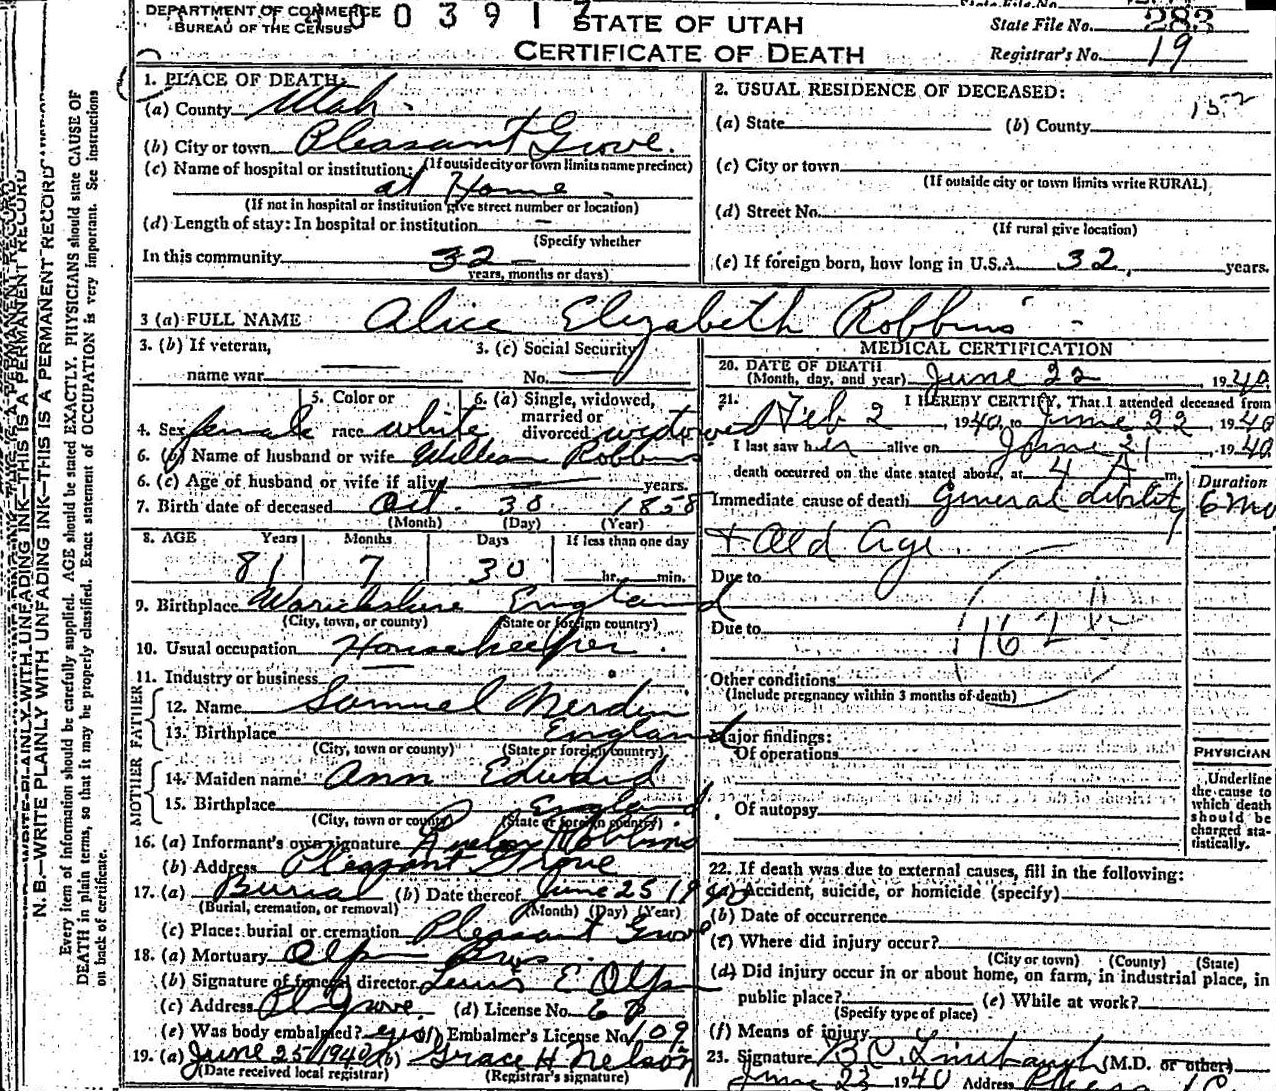 DEPARTMENT OF COMMERCE
BUREAU OF THE CENSUS
A 0 0 3 9 1 7
STATE OF UTAH
CERTIFICATE OF DEATH
State File No. 283
Registrar's No. 19
1. PLACE OF DEATH:
(a) County Utah.
(b) City or town Pleasant Grove.
(If outside city or town limits name precinct)
(c) Name of hospital or institution:
at Home
(If not in hospital or institution give street number or location)
(d) Length of stay: In hospital or institution –
(Specify whether
In this community 32 –
years, months or days)
2. USUAL RESIDENCE OF DECEASED:
(a) State (b) County
(c) City or town
(If outside city or town limits write RURAL)
(d) Street No.
(If rural give location)
(e) If foreign born, how long in U.S.A. 32, years.
3 (a) FULL NAME Alice Elizabeth Robbins -
3. (b) If veteran,
name war
3. (c) Social Security
No.
4. Sex female
5. Color or
race white
6. (a) Single, widowed,
married or
divorced widowed
6. (b) Name of husband or wife William Robbins
6. (c) Age of husband or wife if alive years.
7. Birth date of deceased Oct. 30 1858
(Month) (Day) (Year)
8. AGE Years Months Days If less than one day
81 7 30 hr. min.
9. Birthplace England
(City, town, or county) (State or foreign country)
10. Usual occupation Housekeeper.
11. Industry or business
FATHER
12. Name Samuel
13. Birthplace England
(City, town or county) (State or foreign country)
MOTHER
14. Maiden name Ann
15. Birthplace England
(City, town or county) (State or foreign country)
16. (a) Informant's own signature Robbins
(b) Address Pleasant Grove
17. (a) Burial (b) Date thereof June 25 1940
(Burial, cremation, or removal) (Month) (Day) (Year)
(c) Place: burial or cremation Pleasant Grove
18. (a) Mortuary Olpin Bros.
(b) Signature of funeral director Olpin
(c) Address Pl Grove. (d) License No.
(e) Was body embalmed? yes (f) Embalmer's License No. 109
19. (a) June 25 1940 (b) Grace H. Nelson
(Date received local registrar) (Registrar's signature)
MEDICAL CERTIFICATION
20. DATE OF DEATH
(Month, day, and year) June 22, 1940.
21. I HEREBY CERTIFY, That I attended deceased from
Feb 2, 1940, to June 22, 1940
I last saw her alive on June 21, 1940
death occurred on the date stated above, at 4 A m.
Duration
Immediate cause of death General debility 6 mo
+ old age.
Due to
Due to
162
Other conditions
(Include pregnancy within 3 months of death)
Major findings:
Of operations
Of autopsy
PHYSICIAN
Underline
the cause to
which death
should be
charged sta-
tistically.
22. If death was due to external causes, fill in the following:
(a) Accident, suicide, or homicide (specify)
(b) Date of occurrence
(c) Where did injury occur?
(City or town) (County) (State)
(d) Did injury occur in or about home, on farm, in industrial place, in
public place? (e) While at work?
(Specify type of place)
(f) Means of injury
23. Signature (M.D. or other)
June 23 1940 Address
N. B.—WRITE PLAINLY WITH UNFADING INK—THIS IS A PERMANENT RECORD
Every item of information should be carefully supplied. AGE should be stated EXACTLY. PHYSICIANS should state CAUSE OF
DEATH in plain terms, so that it may be properly classified. Exact statement of OCCUPATION is very important. See instructions
on back of certificate.